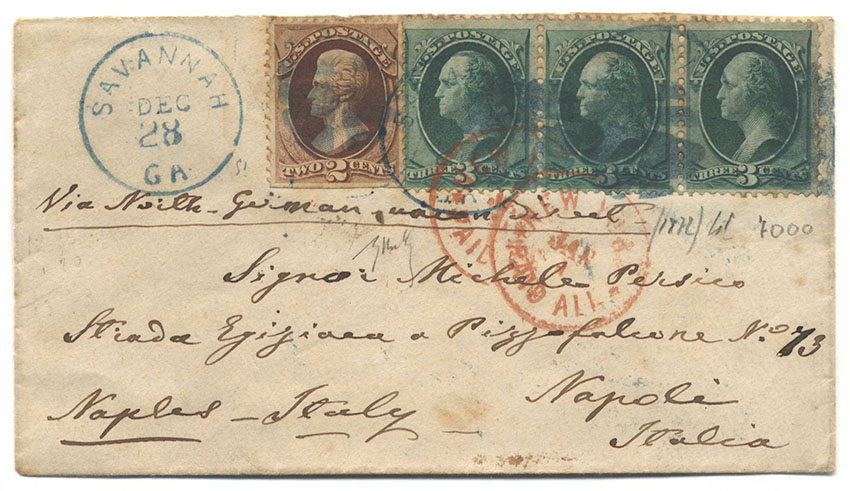 SAVANNAH
DEC
28
GA
U.S. POSTAGE
TWO 2 CENTS
U.S. POSTAGE
THREE 3 CENTS
U.S. POSTAGE
THREE 3 CENTS
U.S. POSTAGE
THREE 3 CENTS
NEW
PAID ALL
Via North-German union Direct
7000
Signor Michele Persico
Strada Egiziaca a Pizzofalcone No. 73
Naples - Italy - Napoli
Italia